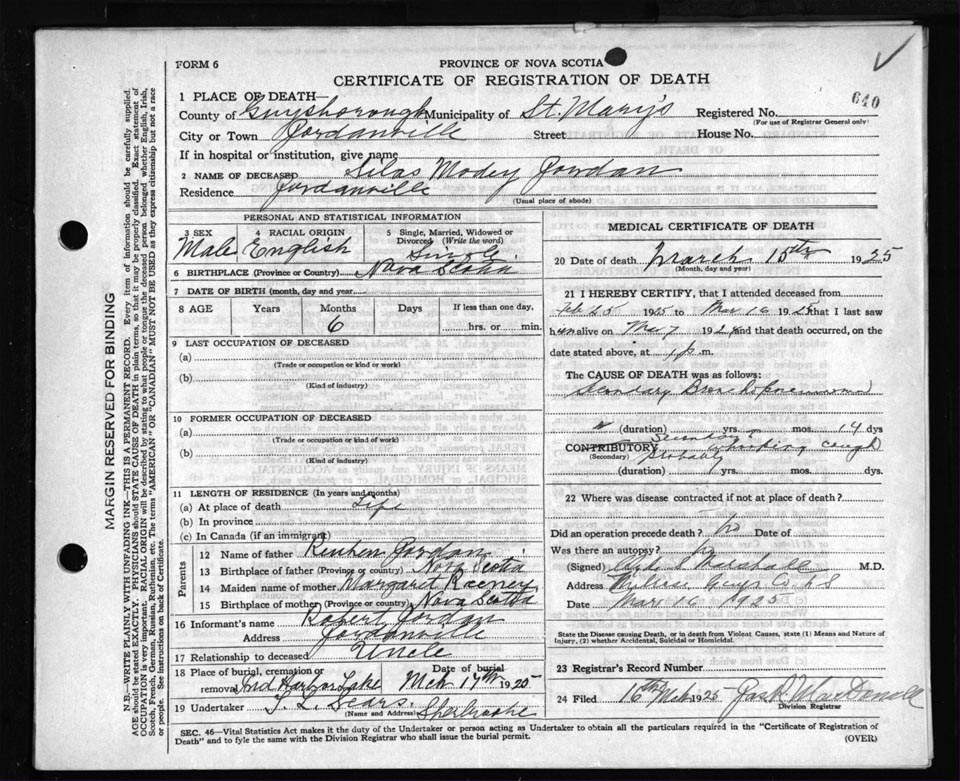 640
FORM 6
PROVINCE OF NOVA SCOTIA
CERTIFICATE OF REGISTRATION OF DEATH
1 PLACE OF DEATH—
County of Guysborough Municipality of St. Mary's Registered No.
(For use of Registrar General only)
City or Town Jordanville Street House No.
If in hospital or institution, give name
2 NAME OF DECEASED Silas Jordan
Residence Jordanville
(Usual place of abode)
PERSONAL AND STATISTICAL INFORMATION
3 SEX 4 RACIAL ORIGIN 5 Single, Married, Widowed or Divorced (Write the word)
Male English Single
6 BIRTHPLACE (Province or Country) Nova Scotia
7 DATE OF BIRTH (month, day and year)
8 AGE Years Months Days If less than one day,
6 hrs. or min.
9 LAST OCCUPATION OF DECEASED
(a)
(Trade or occupation or kind or work)
(b)
(Kind of industry)
10 FORMER OCCUPATION OF DECEASED
(a)
(Trade or occupation or kind of work)
(b)
(Kind of industry)
11 LENGTH OF RESIDENCE (In years and months)
(a) At place of death Life
(b) In province
(c) In Canada (if an immigrant)
Parents
12 Name of father Reuben Jordan
13 Birthplace of father (Province or country) Nova Scotia
14 Maiden name of mother Margaret
15 Birthplace of mother (Province or country) Nova Scotia
16 Informant's name Robert Jordan
Address Jordanville
17 Relationship to deceased Uncle
18 Place of burial, cremation or removal Lake Date of burial Mch 17th 1925
19 Undertaker Sears Sherbrooke
(Name and Address)
MEDICAL CERTIFICATE OF DEATH
20 Date of death March 15th 1925
(Month, day and year)
21 I HEREBY CERTIFY, that I attended deceased from
Feb 25 1925 to Mar 16 1925 that I last saw
him alive on Mar 7 192 and that death occurred, on the
date stated above, at 1 p. m.
The CAUSE OF DEATH was as follows:
Secondary Broncho pneumonia
(duration) yrs. mos. 14 dys
CONTRIBUTORY Secondary to whooping cough
(Secondary) probably
(duration) yrs. mos. dys.
22 Where was disease contracted if not at place of death?
Did an operation precede death? No Date of
Was there an autopsy? No
(Signed) Clyde S Marshall M.D.
Address Guys Co. N S
Date Mar 16 1925
State the Disease causing Death, or in death from Violent Causes, state (1) Means and Nature of
Injury, (2) whether Accidental, Suicidal or Homicidal.
23 Registrar's Record Number
24 Filed 16th Mch 1925 MacDonald
Division Registrar
SEC. 46—Vital Statistics Act makes it the duty of the Undertaker or person acting as Undertaker to obtain all the particulars required in the "Certificate of Registration of
Death" and to fyle the same with the Division Registrar who shall issue the burial permit.
(OVER)
MARGIN RESERVED FOR BINDING
N.B.—WRITE PLAINLY WITH UNFADING INK—THIS IS A PERMANENT RECORD. Every item of information should be carefully supplied.
AGE should be stated EXACTLY. PHYSICIANS should STATE CAUSE OF DEATH in plain terms, so that it may be properly classified. Exact statement of
OCCUPATION is very important. RACIAL ORIGIN will be described by stating to what people or tongue the deceased person belonged whether English, Irish,
Scotch, French, German, Russian, Ruthenian, etc. The terms "AMERICAN" or "CANADIAN" MUST NOT BE USED as they express citizenship but not a race
or people. See instructions on back of Certificate.